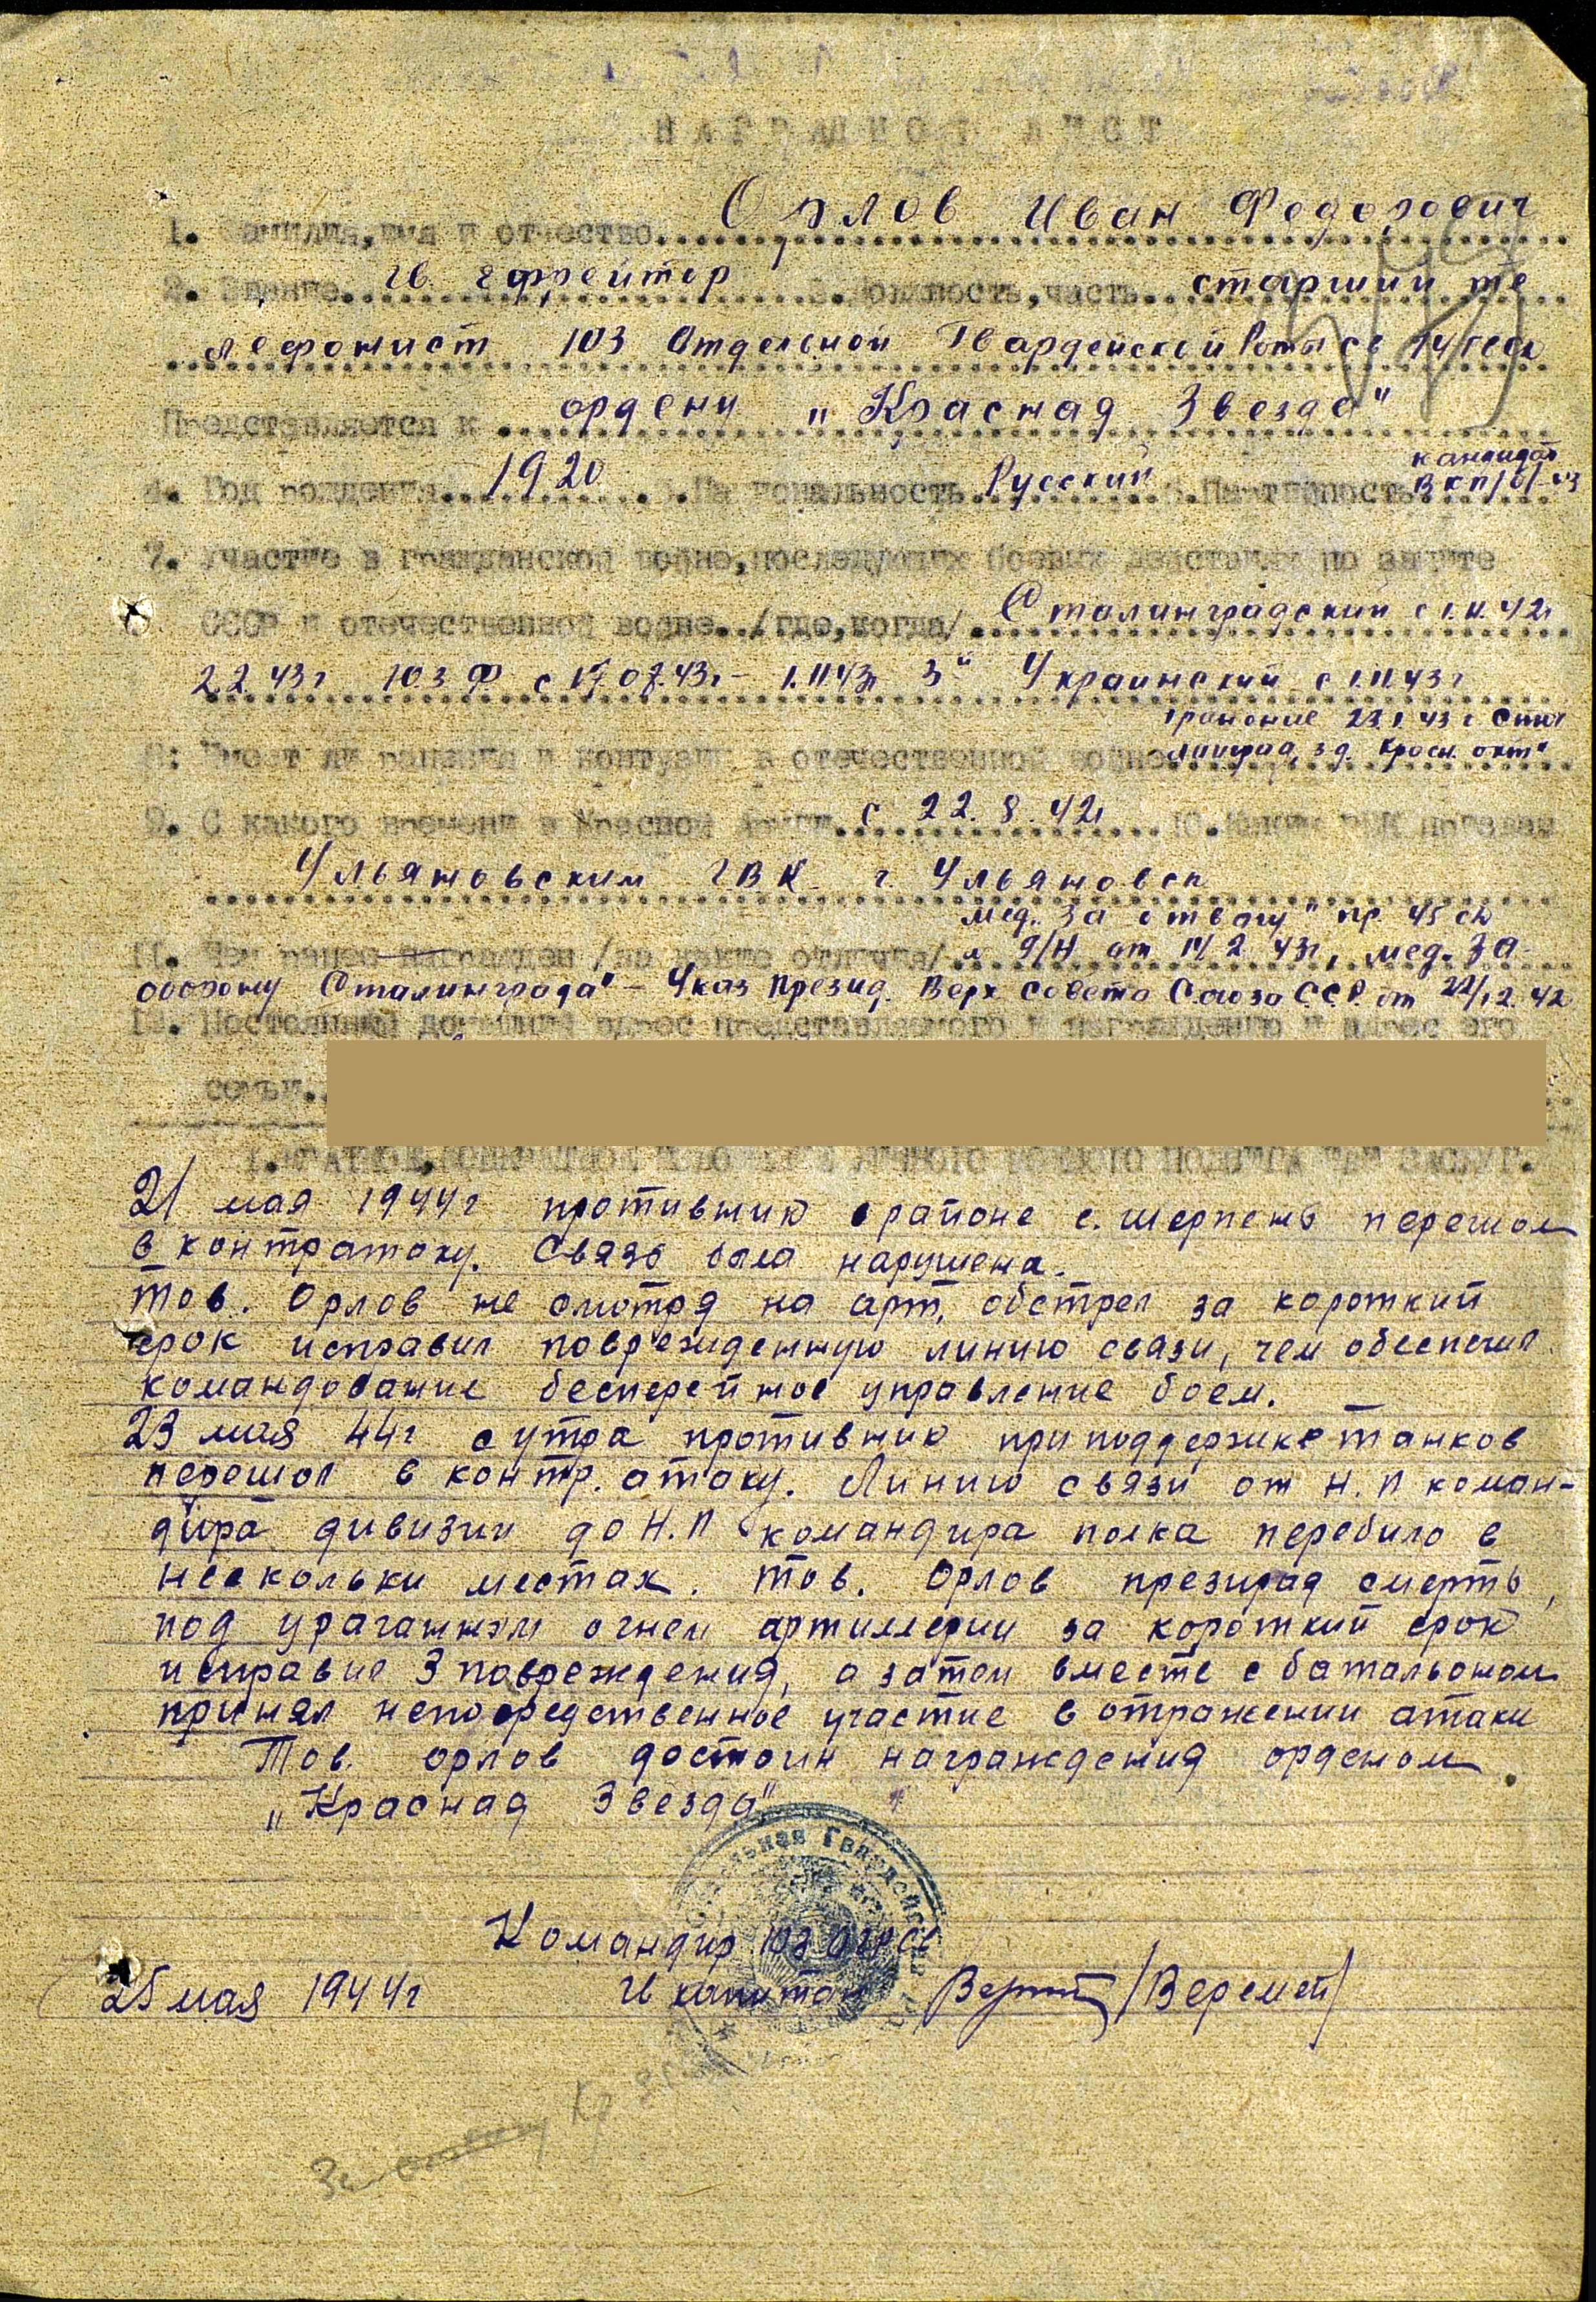 НАГРАДНОЙ ЛИСТ
1. Фамилия, имя и отчество. Орлов Иван Федорович
2. Звание. гв. ефрейтор 3. Должность, часть. старший те
лефонист 103 Отдельной Гвардейской Роты св 14 гвсд
Представляется к ордену „Красная Звезда"
кандидат
4. Год рождения 1920 5. Национальность Русский 6. Партийность ВКП/б/
7. Участие в гражданской войне, последующих боевых действиях по защите
СССР и отечественной войне. /где, когда/ Сталинградский с
2.2.43г Ю.З.Ф. с 17.07.43г – 1.11.43г 3й Украинский с 1.11.43г
ранение 23.1.43г Стал
8: Имеет ли ранения и контузии в отечественной войне линград, зд. Красн. окт"
9. С какого времени в Красной Армии с 22.8.42г 10. Каким РВК призван
Ульяновским ГВК г. Ульяновск
мед. „За отвагу" пр. 45 сд
11. Чем ранее награжден /за какие отличия/ № 9/Н от 14/2 43г, мед. „За
оборону Сталинграда" – Указ Презид. Верх Совета Союза ССР от 22/12 42
12. Постоянный домашний адрес представляемого к награждению и адрес его
семьи.
1. КРАТКОЕ, КОНКРЕТНОЕ ИЗЛОЖЕНИЕ ЛИЧНОГО БОЕВОГО ПОДВИГА ИЛИ ЗАСЛУГ.
21 мая 1944г противник в районе с. Шерпень перешол
в контратаку. Связь была нарушена.
Тов. Орлов не смотря на арт. обстрел за короткий
срок исправил поврежденную линию связи, чем обеспечил
командование бесперейное управление боем.
23 мая 44г с утра противник при поддержке танков
перешол в контр. атаку. Линию связи от Н.П коман-
дира дивизии до Н.П командира полка перебило в
нескольки местах. Тов. Орлов презирая смерть,
под ураганным огнем артиллерии за короткий срок
исправил 3 повреждения, а затем вместе с батальоном
принял непосредственное участие в отражении атаки
Тов. Орлов достоин награждения орденом
„Красная Звезда"
Командир 103 ОГРСв
25 мая 1944г гв капитан /Веремей/
За отвагу Кр